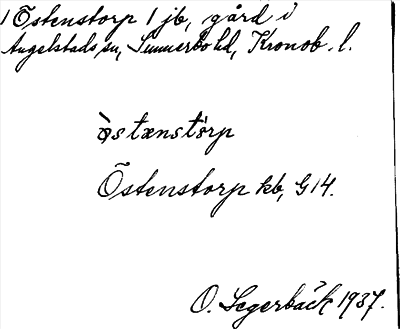 1 Östenstorp 1 jb, gård i
Angelstads sn, Sunnerbo hd, Kronob. l.
Östenstorp kb, G 14.
O. Segerbäck 1937.